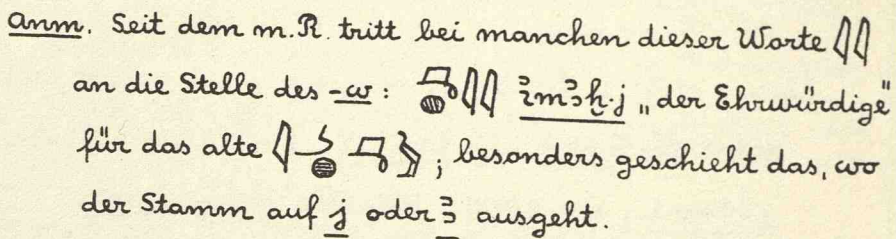 Anm. Seit dem m.R. tritt bei manchen dieser Worte 𓇌
an die Stelle des -w: 𓄪𓐍𓇌 ꜣmꜣḫ·j „der Ehrwürdige“
für das alte ; besonders geschieht das, wo
der Stamm auf j oder ꜣ ausgeht.